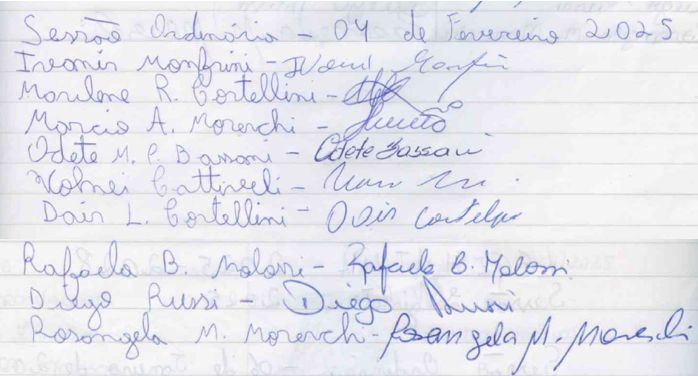 Sessão Ordinária - 04 de Fevereiro 2025
Ivonir Monfrini - Ivonir Monfri
Marilene R. Cortellini -
Marcio A. Moreschi -
Odete M. P. Bassani - Odete Bassani
Volnei Cattivelli -
Dair L. Cortellini - Dair Cortelini
Rafaela B. Malossi - Rafaela B. Malossi
Diego Russi - Diego Russi
Rosangela M. Moreschi - Rosangela M. Moreschi